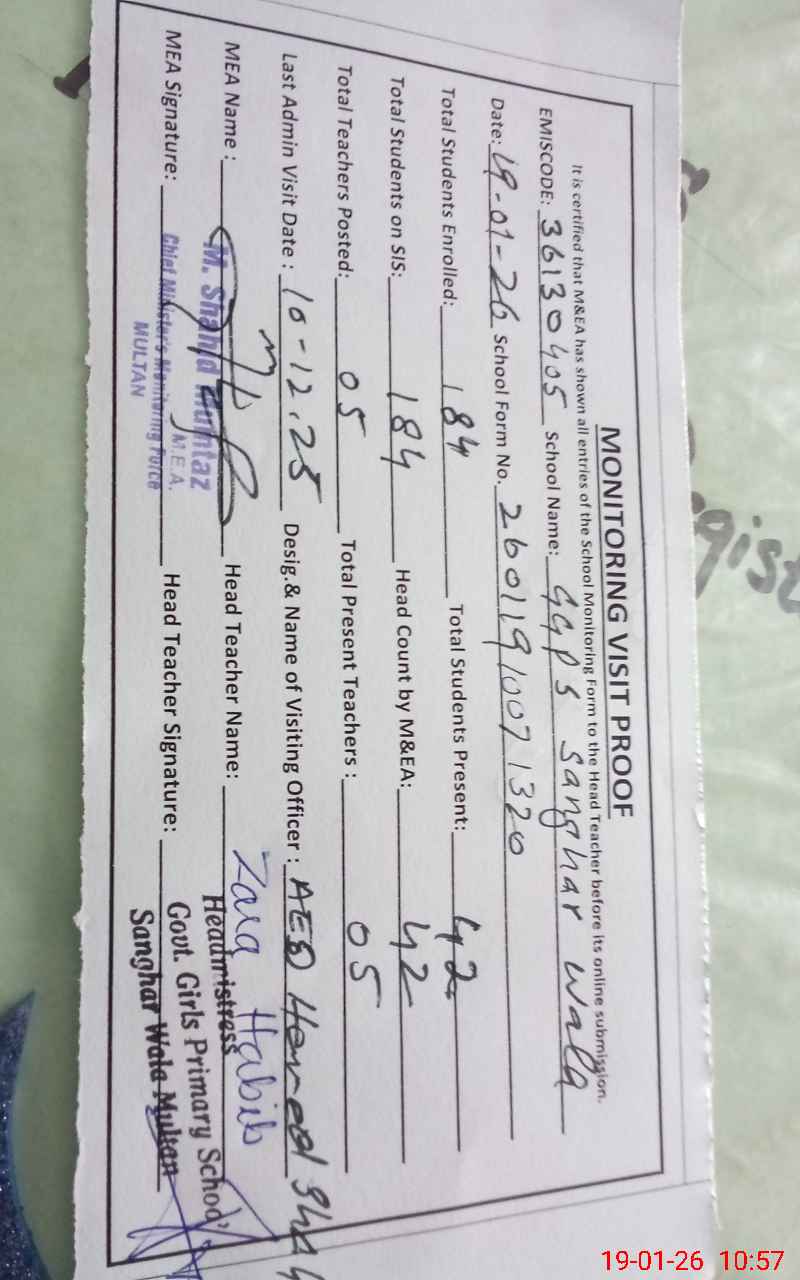 MONITORING VISIT PROOF
It is certified that M&EA has shown all entries of the School Monitoring Form to the Head Teacher before its online submission.
EMISCODE: 36130405 School Name: GGPS Sanghar Wala
Date: 19-01-26 School Form No. 26011910071320
Total Students Enrolled: 184 Total Students Present: 42
Total Students on SIS: 184 Head Count by M&EA: 42
Total Teachers Posted: 05 Total Present Teachers : 05
Last Admin Visit Date : 10-12.25 Desig.& Name of Visiting Officer : AEO
MEA Name : Head Teacher Name: Zara Habib
MEA Signature: Head Teacher Signature:
M. Shahid Mumtaz
M.E.A.
Chief Minister's Monitoring Force
MULTAN
Headmistress
Govt. Girls Primary School
Sanghar Wala Multan
19-01-26 10:57